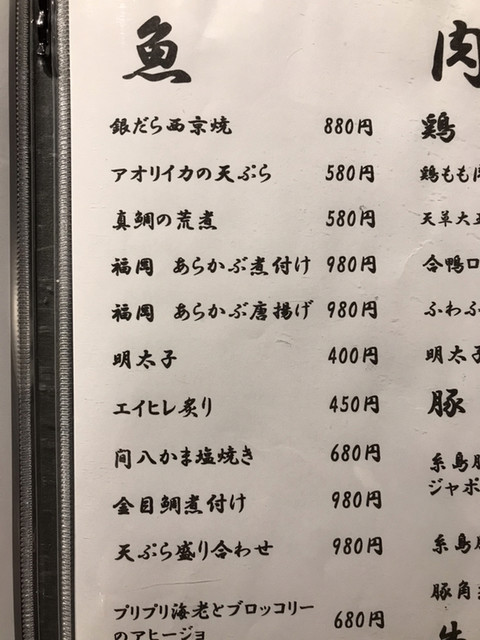 魚
銀だら西京焼 880円
アオリイカの天ぷら 580円
真鯛の荒煮 580円
福岡 あらかぶ煮付け 980円
福岡 あらかぶ唐揚げ 980円
明太子 400円
エイヒレ炙り 450円
間八かま塩焼き 680円
金目鯛煮付け 980円
天ぷら盛り合わせ 980円
プリプリ海老とブロッコリー
のアヒージョ 680円
肉
鶏
鶏もも
天草大
合鴨ロ
ふわふ
明太子
豚
糸島豚
ジャポ
糸島豚
豚角